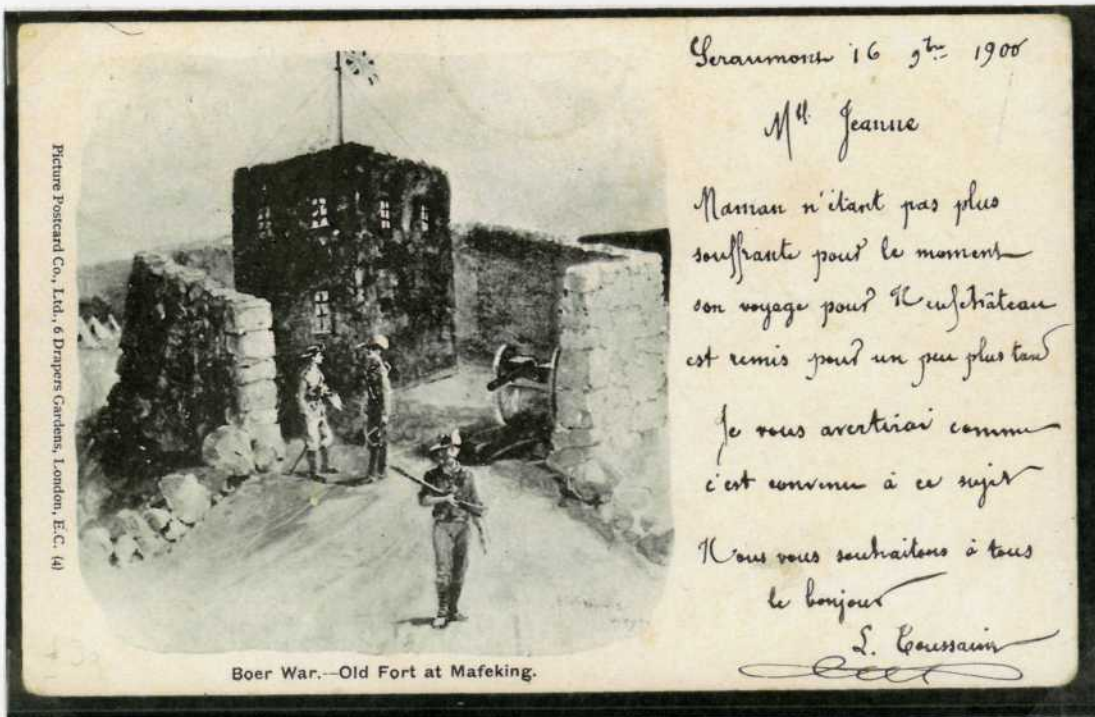 Picture Postcard Co., Ltd., 6 Drapers Gardens, London, E.C. (4)
Boer War.—Old Fort at Mafeking.
Seraumont 16 9bre 1900
Mlle Jeanne
Maman n'étant pas plus
souffrante pour le moment
son voyage pour Neufchâteau
est remis pour un peu plus tard
Je vous avertirai comme
c'est convenu à ce sujet
Nous vous souhaitons à tous
le bonjour
L. Toussaint